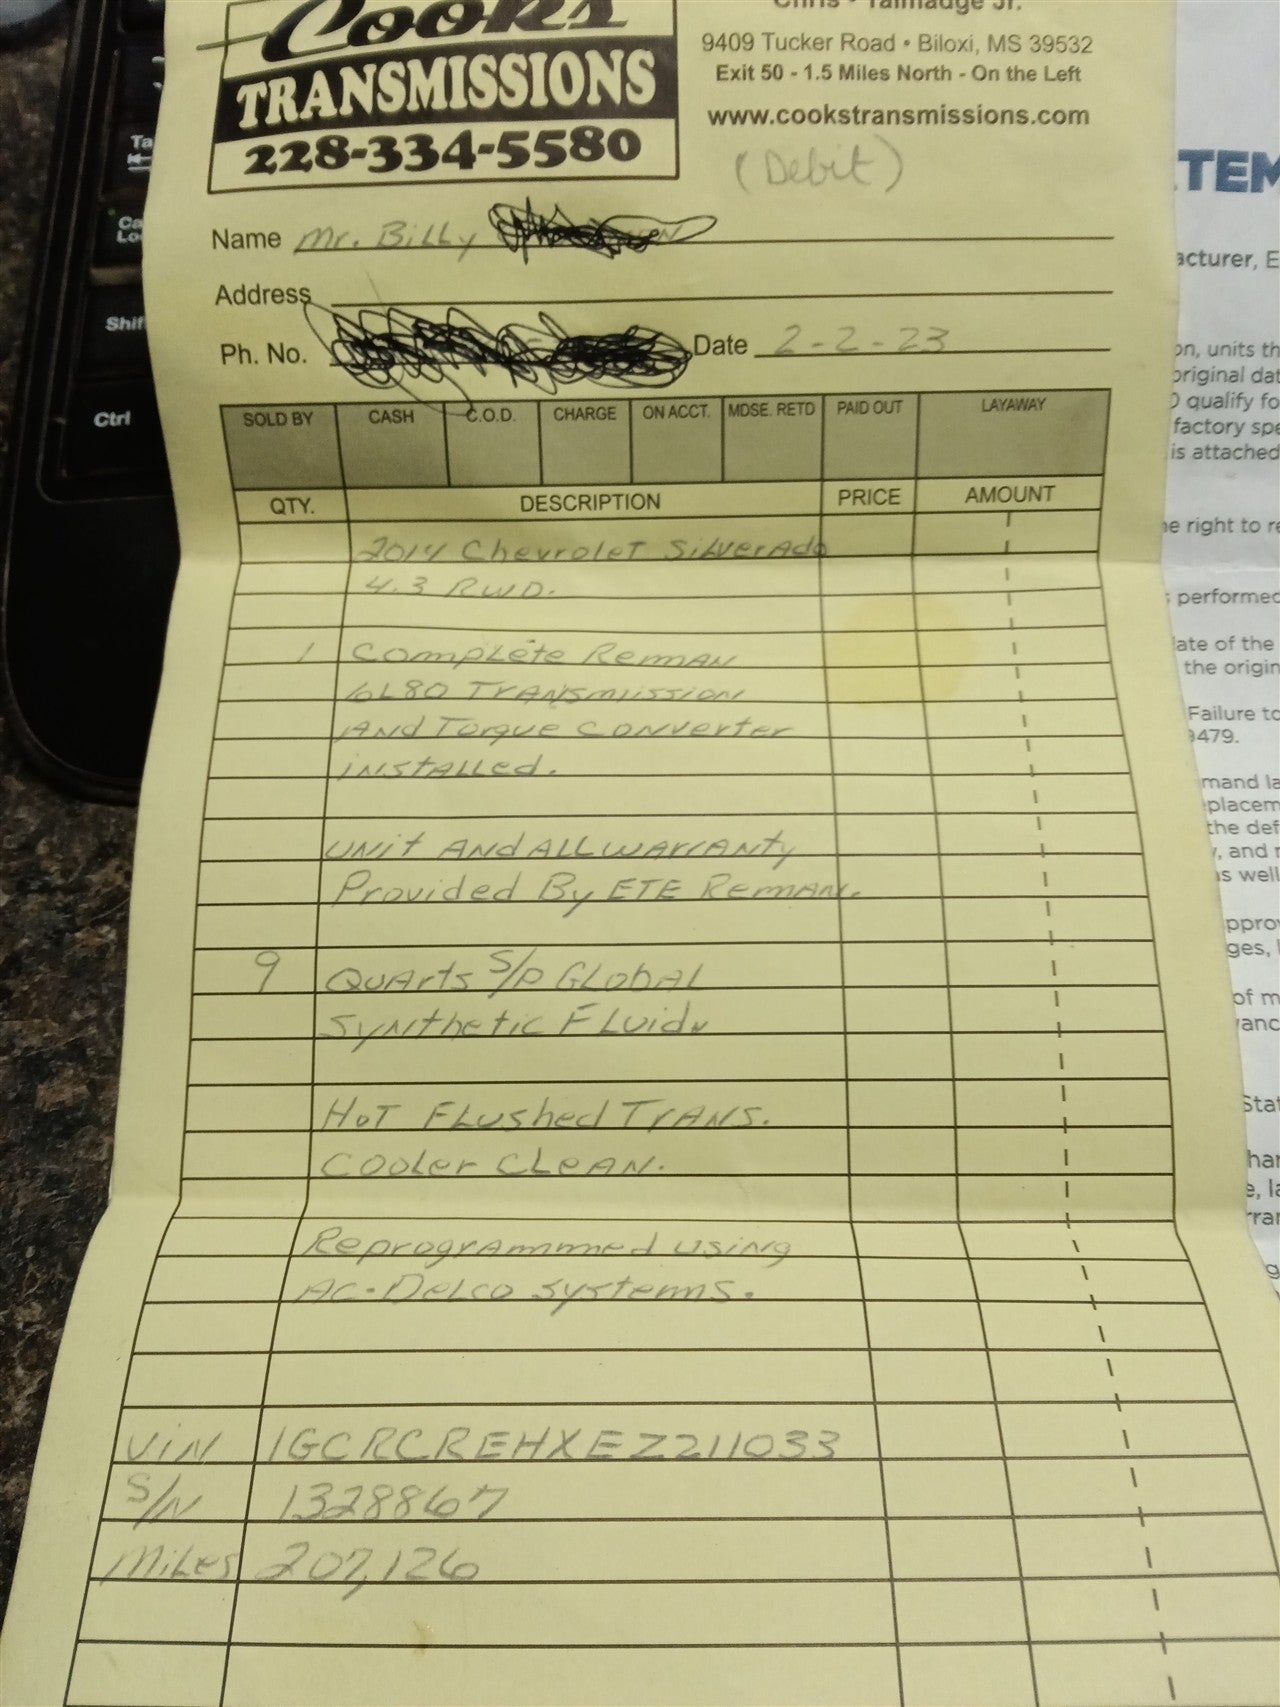 Cooks
TRANSMISSIONS
228-334-5580
Chris • Talmadge Jr.
9409 Tucker Road • Biloxi, MS 39532
Exit 50 - 1.5 Miles North - On the Left
www.cookstransmissions.com
(Debit)
Name Mr. Billy
Address
Ph. No. Date 2-2-23
SOLD BY CASH C.O.D. CHARGE ON ACCT. MDSE. RETD PAID OUT LAYAWAY
QTY. DESCRIPTION PRICE AMOUNT
2014 Chevrolet Silverado
4.3 RWD.
1 Complete Reman
6L80 Transmission
And Torque Converter
installed.
Unit And All Warranty
Provided By ETE Reman.
9 Quarts S/P Global
Synthetic Fluid
Hot Flushed Trans.
Cooler Clean.
Reprogrammed using
AC-Delco Systems.
VIN 1GCRCREHXEZ211033
S/N 1328867
Miles 207,126
Ctrl
Shif
TEM
acturer, E
on, units th
original dat
qualify fo
factory spe
is attached
e right to re
performed
ate of the
the origin
Failure to
9479.
mand la
placem
the def
, and
s well
ppro
ges,
of m
anc
Stat
har
e, la
rra